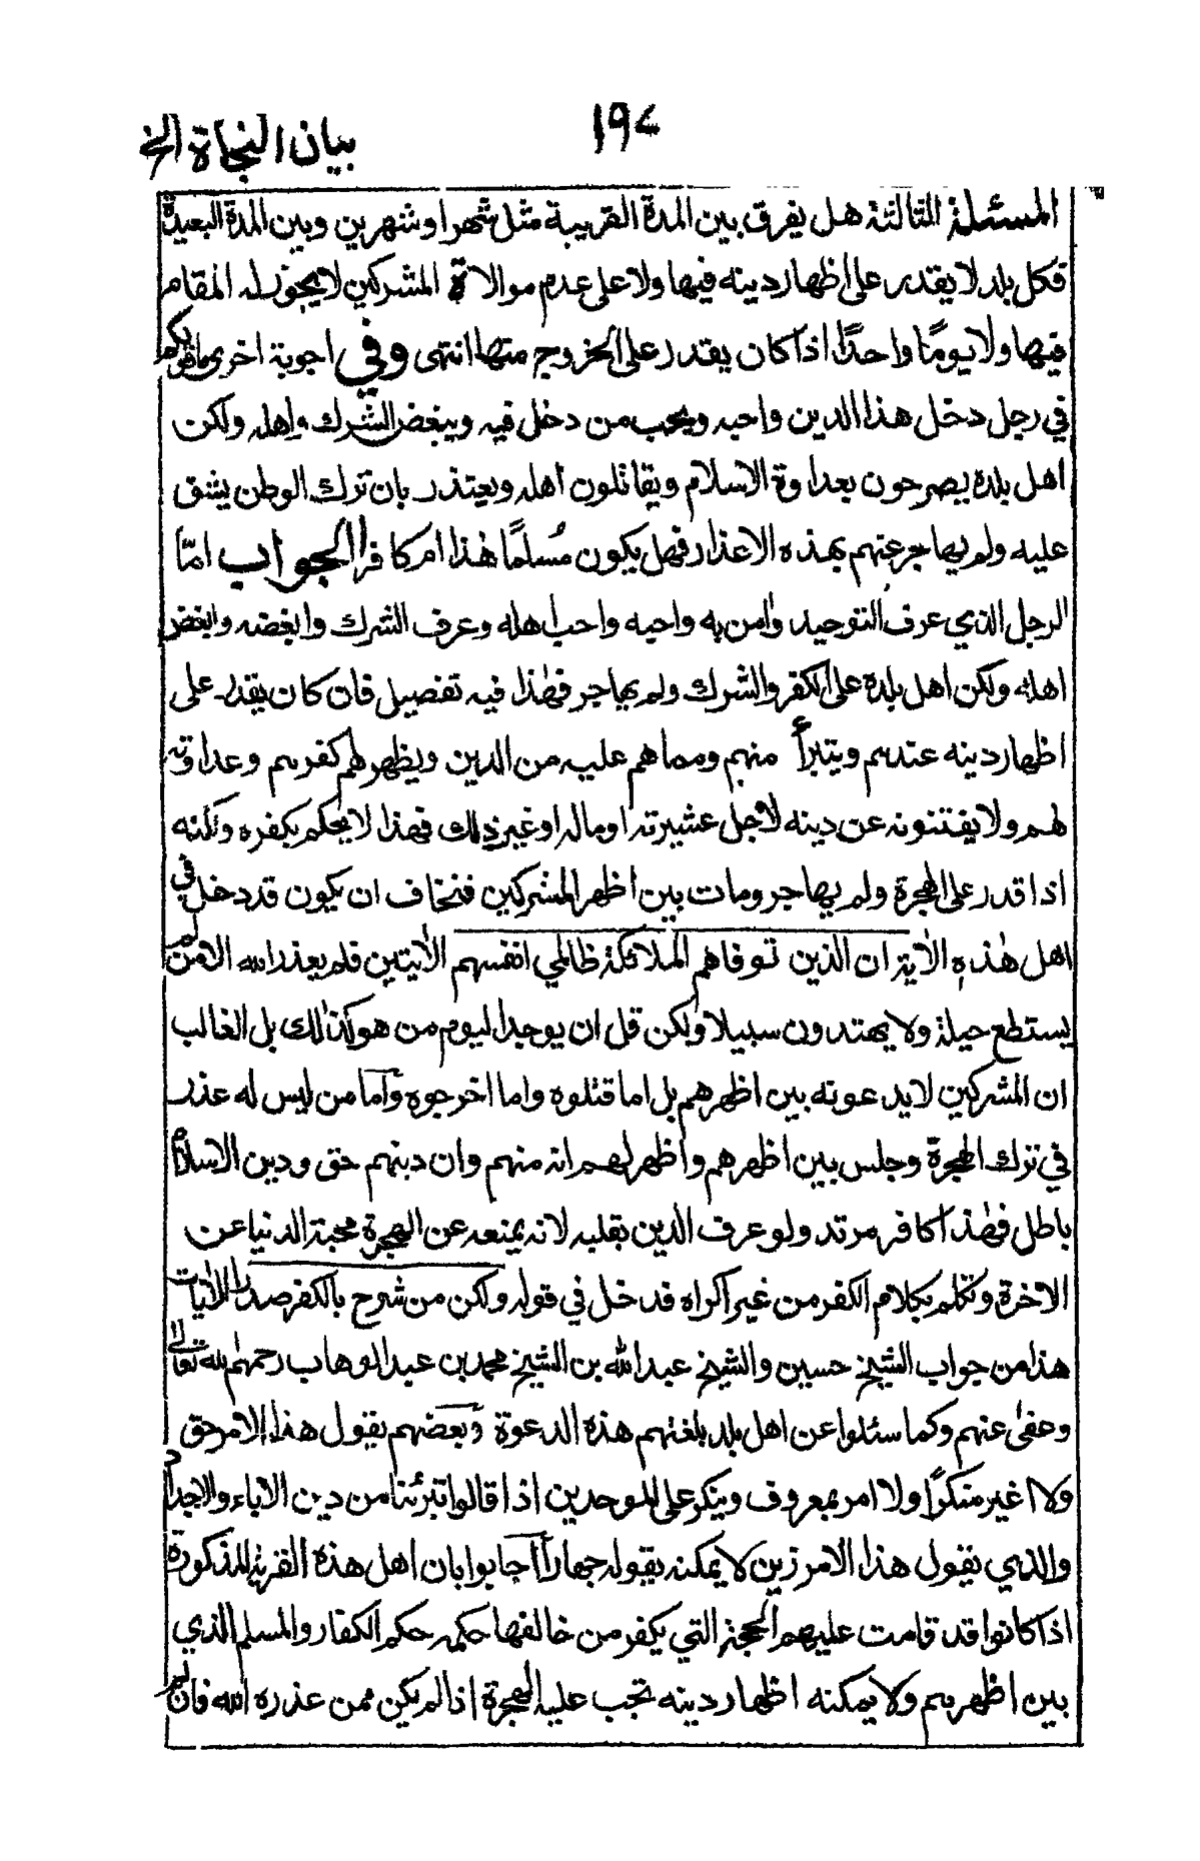 ١٩٨
بيان النجاة الخ
المسئلة الثالثة هل يفرق بين المدة القريبة مثل شهر او شهرين وبين المدة البعيدة
فكل بلد لا يقدر على اظهار دينه فيها ولا على عدم موالاة المشركين لا يجوز له المقام
فيها ولا يومًا واحدًا اذا كان يقدر على الخروج منها انتهى وفي اجوبة اخرى ما قولكم
في رجل دخل هذا الدين واحبه ويحب من دخل فيه ويبغض الشرك واهله ولكن
اهل بلده يصرحون بعداوة الاسلام ويقاتلون اهله ويعتذر بان ترك الوطن يشق
عليه ولم يهاجر عنهم بهذه الاعذار فهل يكون مُسلمًا هذا ام كافرا الجواب امّا
الرجل الذي عرف التوحيد وآمن به واحبه واحب اهله وعرف الشرك وابغضه وابغض
اهله ولكن اهل بلده على الكفر والشرك ولم يهاجر فهذا فيه تفصيل فان كان يقدر على
اظهار دينه عندهم ويتبرأ منهم ومما هم عليه من الدين ويظهر لهم كفرهم وعداوته
لهم ولا يفتنونه عن دينه لاجل عشيرته او ماله او غير ذلك فهذا لا يحكم بكفره ولكنه
اذا قدر على الهجرة ولم يهاجر ومات بين اظهر المشركين فنخاف ان يكون قد دخل في
اهل هذه الآية ان الذين توفاهم الملائكة ظالمي انفسهم الآيتين فلم يعذر الله الا من لم
يستطع حيلة ولا يهتدون سبيلا ولكن قل ان يوجد اليوم من هو كذالك بل الغالب
ان المشركين لا يدعونه بين اظهرهم بل اما قتلوه واما اخرجوه وأما من ليس له عذر
في ترك الهجرة وجلس بين اظهرهم واظهر لهم انه منهم وان دينهم حق ودين الاسلام
باطل فهذا كافر مرتد ولو عرف الدين بقلبه لانه يمنعه عن الهجرة محبة الدنيا عن
الاخرة وتكلم بكلام الكفر من غير اكراه فدخل في قوله ولكن من شرح بالكفر صدرا الآيات
هذا من جواب الشيخ حسين والشيخ عبد الله بن الشيخ محمد بن عبد الوهاب رحمهم الله تعالى
وعفى عنهم وكما سئلوا عن اهل بلد بلغتهم هذه الدعوة وبعضهم يقول هذا الامر حق
ولا اغير منكرًا ولا امر بمعروف وينكر على الموحدين اذا قالوا تبرئنا من دين الآباء والاجداد
والذي يقول هذا الامر زين لا يمكنه يقوله جهارا أجابوا بان اهل هذه القرية المذكورة
اذا كانوا قد قامت عليهم الحجة التي يكفر من خالفها حكمهم حكم الكفار والمسلم الذي
بين اظهرهم ولا يمكنه اظهار دينه تجب عليه الهجرة اذا لم يكن ممن عذره الله فان لم